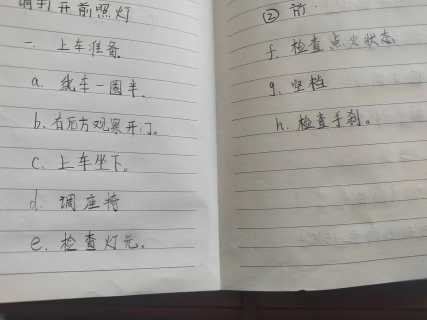 请打开前照灯
一、上车准备
a. 绕车一圈半.
b. 右后方观察开门。
c. 上车坐下。
d. 调座椅
e. 检查灯光。
② 前.
f. 检查点火状态
g. 空档
h. 检查手刹。